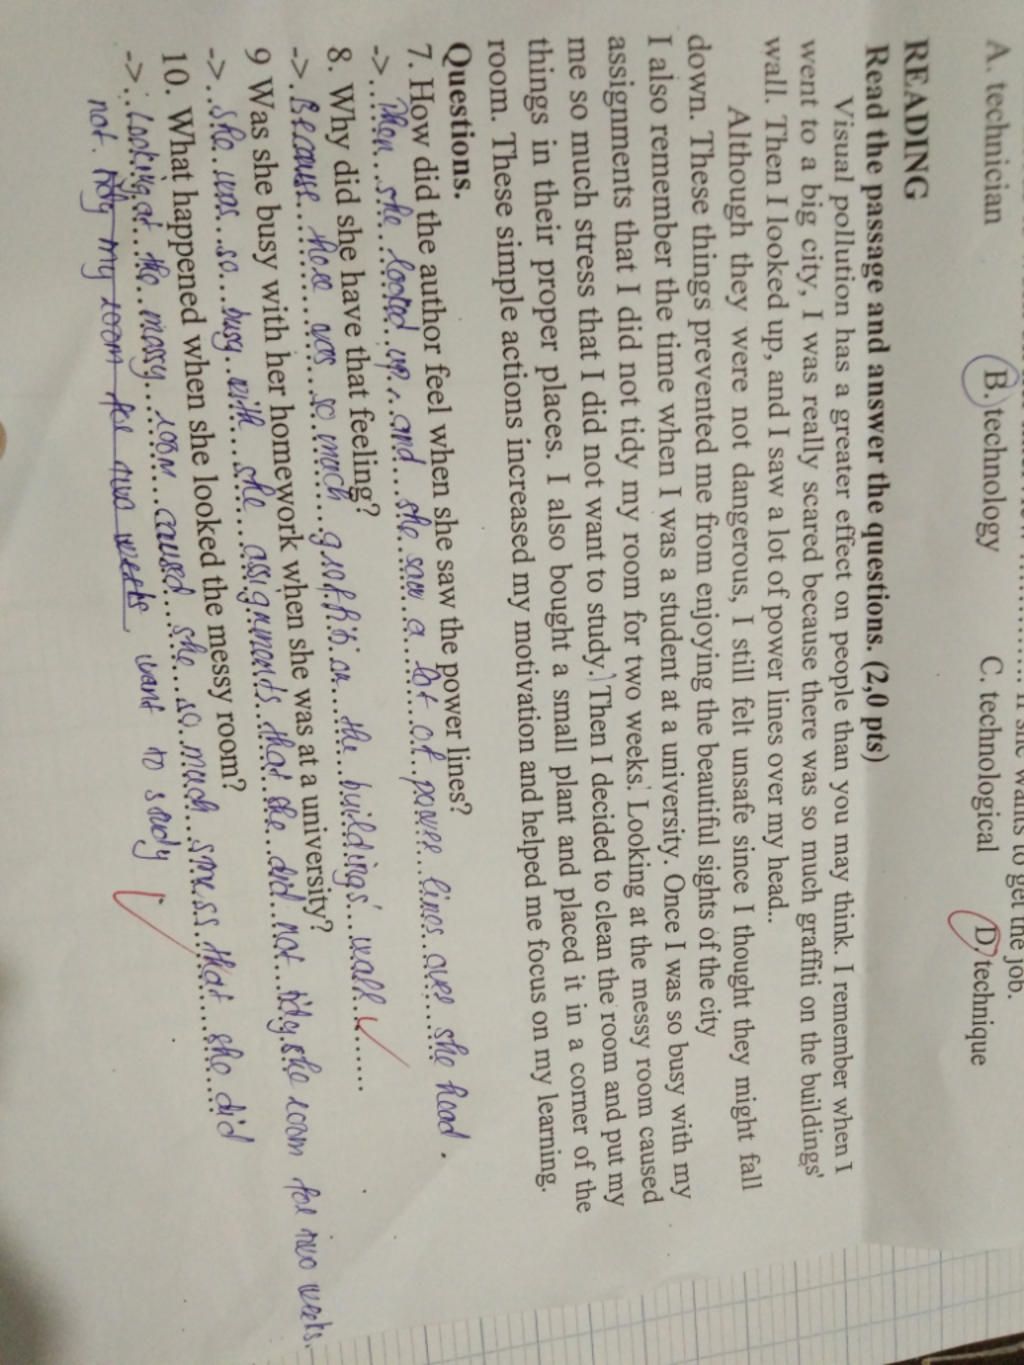 if she wants to get the job.
A. technician B. technology C. technological D. technique
READING
Read the passage and answer the questions. (2,0 pts)
Visual pollution has a greater effect on people than you may think. I remember when I
went to a big city, I was really scared because there was so much graffiti on the buildings'
wall. Then I looked up, and I saw a lot of power lines over my head..
Although they were not dangerous, I still felt unsafe since I thought they might fall
down. These things prevented me from enjoying the beautiful sights of the city
I also remember the time when I was a student at a university. Once I was so busy with my
assignments that I did not tidy my room for two weeks. Looking at the messy room caused
me so much stress that I did not want to study. Then I decided to clean the room and put my
things in their proper places. I also bought a small plant and placed it in a corner of the
room. These simple actions increased my motivation and helped me focus on my learning.
Questions.
7. How did the author feel when she saw the power lines?
-> Then she looked up, and she saw a lot of power lines over she head.
8. Why did she have that feeling?
-> Because there was so much graffiti on the buildings' wall
9 Was she busy with her homework when she was at a university?
-> She was so busy with she assignments that she did not tidy she room for two weeks.
10. What happened when she looked the messy room?
-> Looking at the messy room caused she so much stress that she did
not tidy my room for two weeks want to study